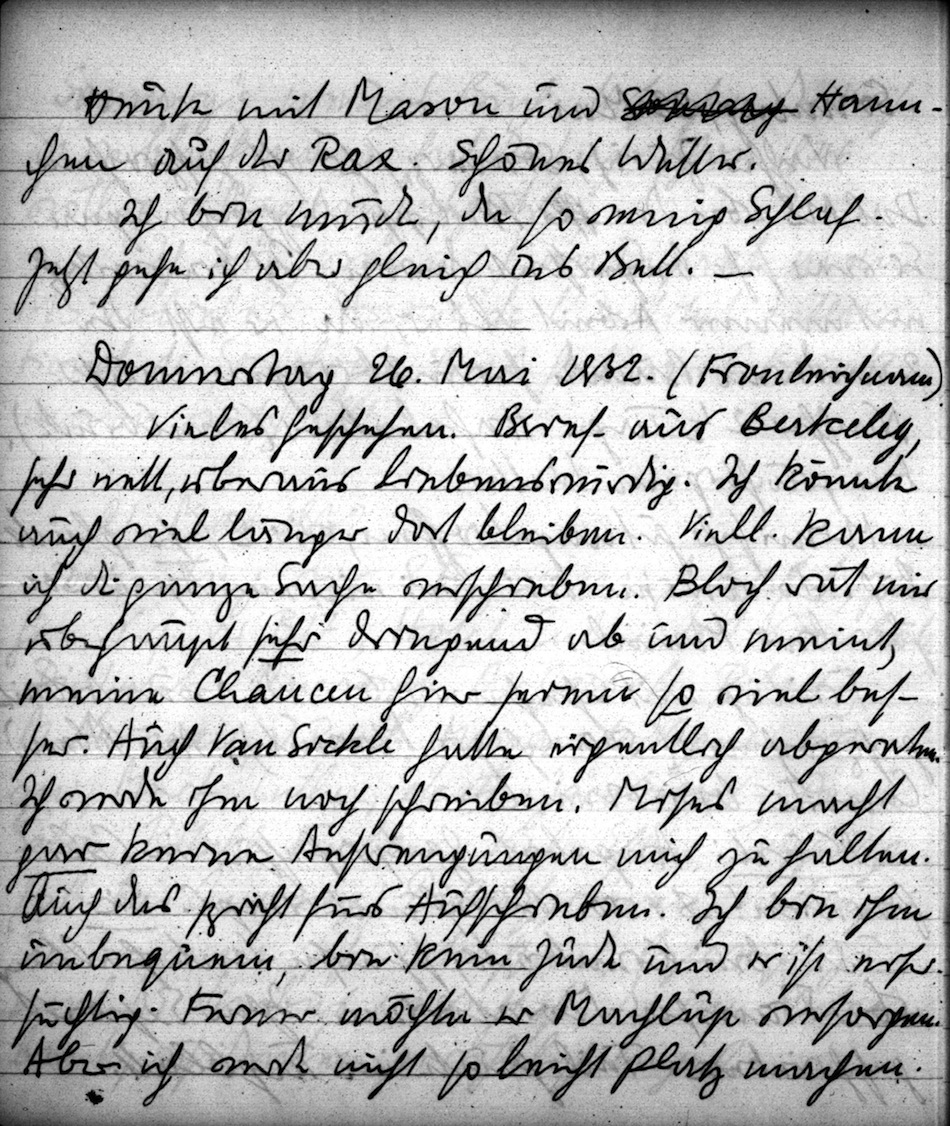 Heute mit Mason und Hann-
chen auf der Rax. Schönes Wetter.
Ich bin müde, da so wenig Schlaf.
Jetzt gehe ich aber gleich ins Bett. —
Donnerstag 26. Mai 1932. (Fronleichnam)
Vieles geschehen. Brief aus Berkeley,
sehr nett, überaus liebenswürdig. Ich könnte
auch viel länger dort bleiben. Viell. kann
ich die ganze Sache verschieben. Bloch rät mir
überhaupt sehr dringend ab und meint,
meine Chancen hier seien so viel bes-
ser. Auch Van Sickle hatte eigentlich abgeraten.
Ich werde ihm noch schreiben. Mises macht
gar keine Anstrengungen mich zu halten.
Auch das spricht fürs Aufschieben. Ich bin ihm
unbequem, bin kein Jude und er ist eifer-
süchtig. Ferner möchte er Machlup versorgen.
Aber ich werde nicht so leicht Platz machen.